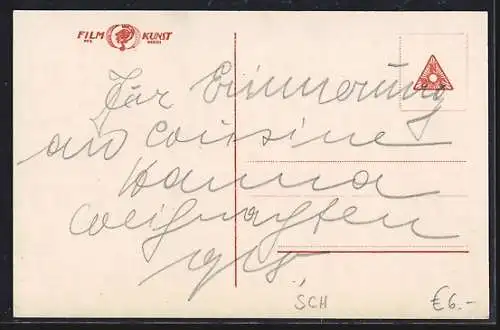 FILM KUNST
Zur Erinnerung
an Cousine
Hanna
Weihnachten
SCH €6.-